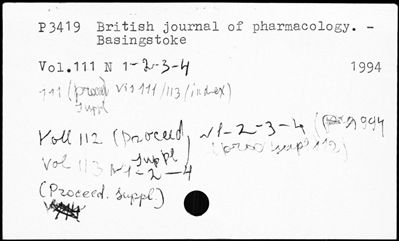 P3419 British journal of pharmacology. -
Basingstoke
Vol.111 N 1-2-3-4 1994
111 (proceed vis 111/113/index)
suppl
Voll 112 (Proceed, N1-2-3-4 1994
suppl
Vol 113 N 1-2-4 (proc suppl 112)
(Proceed. suppl.)